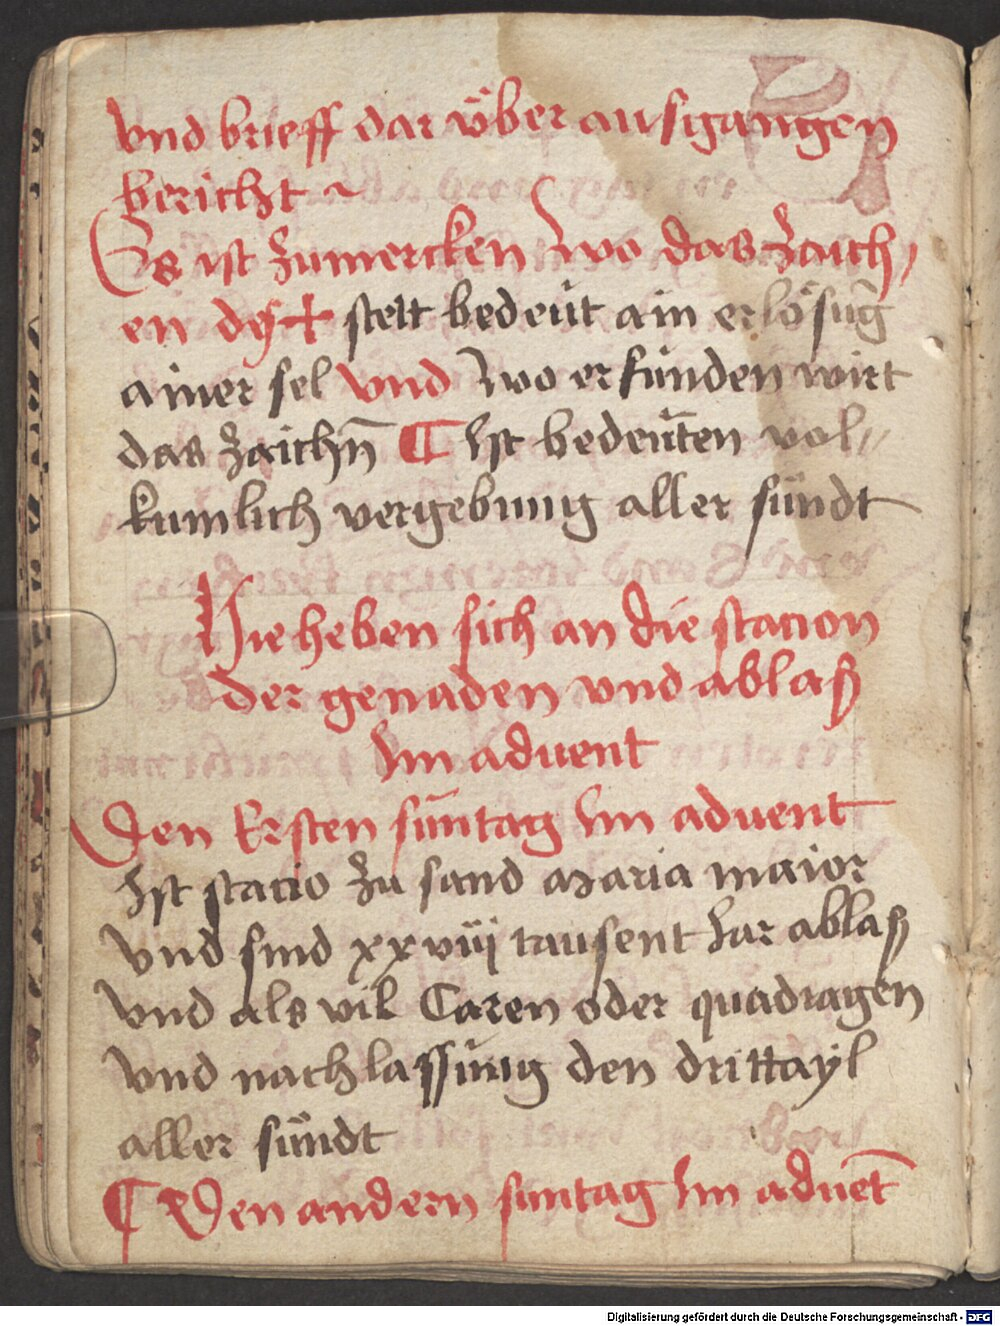 vnd brieff dar vͤber ausgangen
bericht ~
Es ist zumercken wo das zaich/
en dz + stett bedeut ain erlösūg
ainer sel vnd wo er funden wirt
das zaichn̄ ¶ Ist bedeuten vol//
kumlich vergebung aller sündt
Hie heben sich an die stacion
der genaden vnd ablaß
Im aduent
Den Ersten suntag Im aduent
Ist stacio zu sand maria maior
vnd sind xxviij tausent Jar ablaß
vnd als vil Caren oder quadragen
vnd nachlassung den drittayl
aller sündt
¶ Den andern suntag Im aduēt
Digitalisierung gefördert durch die Deutsche Forschungsgemeinschaft - DFG